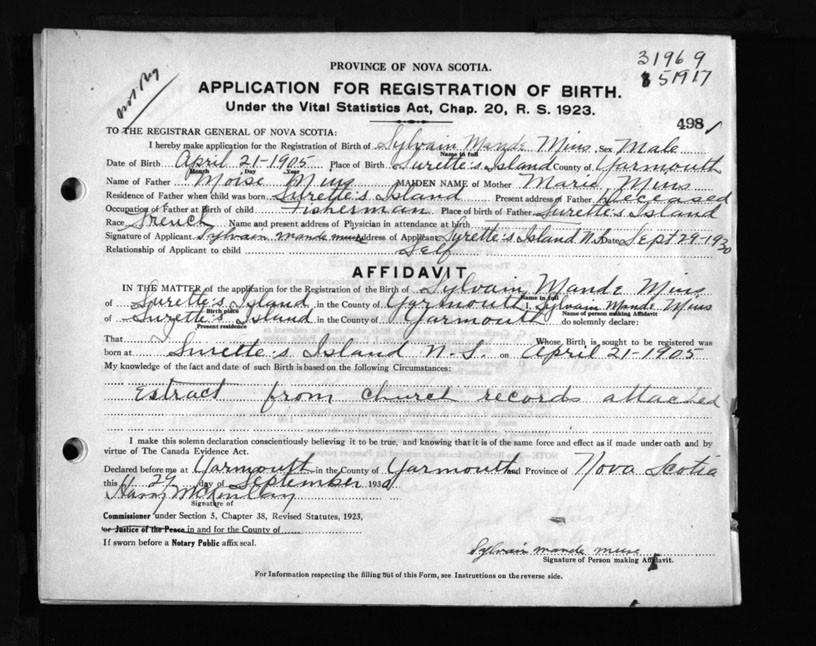 PROVINCE OF NOVA SCOTIA.
31969
51917
Not Reg
APPLICATION FOR REGISTRATION OF BIRTH.
Under the Vital Statistics Act, Chap. 20, R. S. 1923.
498
TO THE REGISTRAR GENERAL OF NOVA SCOTIA:
I hereby make application for the Registration of Birth of Sylvain Mande Mius Sex Male
Name in full
Date of Birth April 21-1905 Place of Birth Surette's Island County of Yarmouth
Month Day Year
Name of Father Moise Mius MAIDEN NAME of Mother Marie Mius
Residence of Father when child was born Surette's Island Present address of Father Deceased
Occupation of Father at Birth of child Fisherman Place of birth of Father Surette's Island
Race French Name and present address of Physician in attendance at birth
Signature of Applicant Sylvain mande muse Address of Applicant Surette's Island N.S. Date Sept 29-1930
Relationship of Applicant to child Self
AFFIDAVIT
IN THE MATTER of the application for the Registration of the Birth of Sylvain Mande Mius
Name in full
of Surette's Island in the County of Yarmouth I, Sylvain Mande Mius
Birth place Name of person making Affidavit
of Surette's Island in the County of Yarmouth do solemnly declare:
Present residence
That Whose Birth is sought to be registered was
born at Surette's Island N.S. on April 21-1905
My knowledge of the fact and date of such Birth is based on the following Circumstances:
Extract from church records attached
I make this solemn declaration conscientiously believing it to be true, and knowing that it is of the same force and effect as if made under oath and by
virtue of The Canada Evidence Act.
Declared before me at Yarmouth in the County of Yarmouth and Province of Nova Scotia
this 29 day of September 1930
Harry McKinlay
Signature of
Commissioner under Section 5, Chapter 38, Revised Statutes, 1923,
or Justice of the Peace in and for the County of
If sworn before a Notary Public affix seal.
Sylvain mande muse
Signature of Person making Affidavit.
For Information respecting the filling out of this Form, see Instructions on the reverse side.